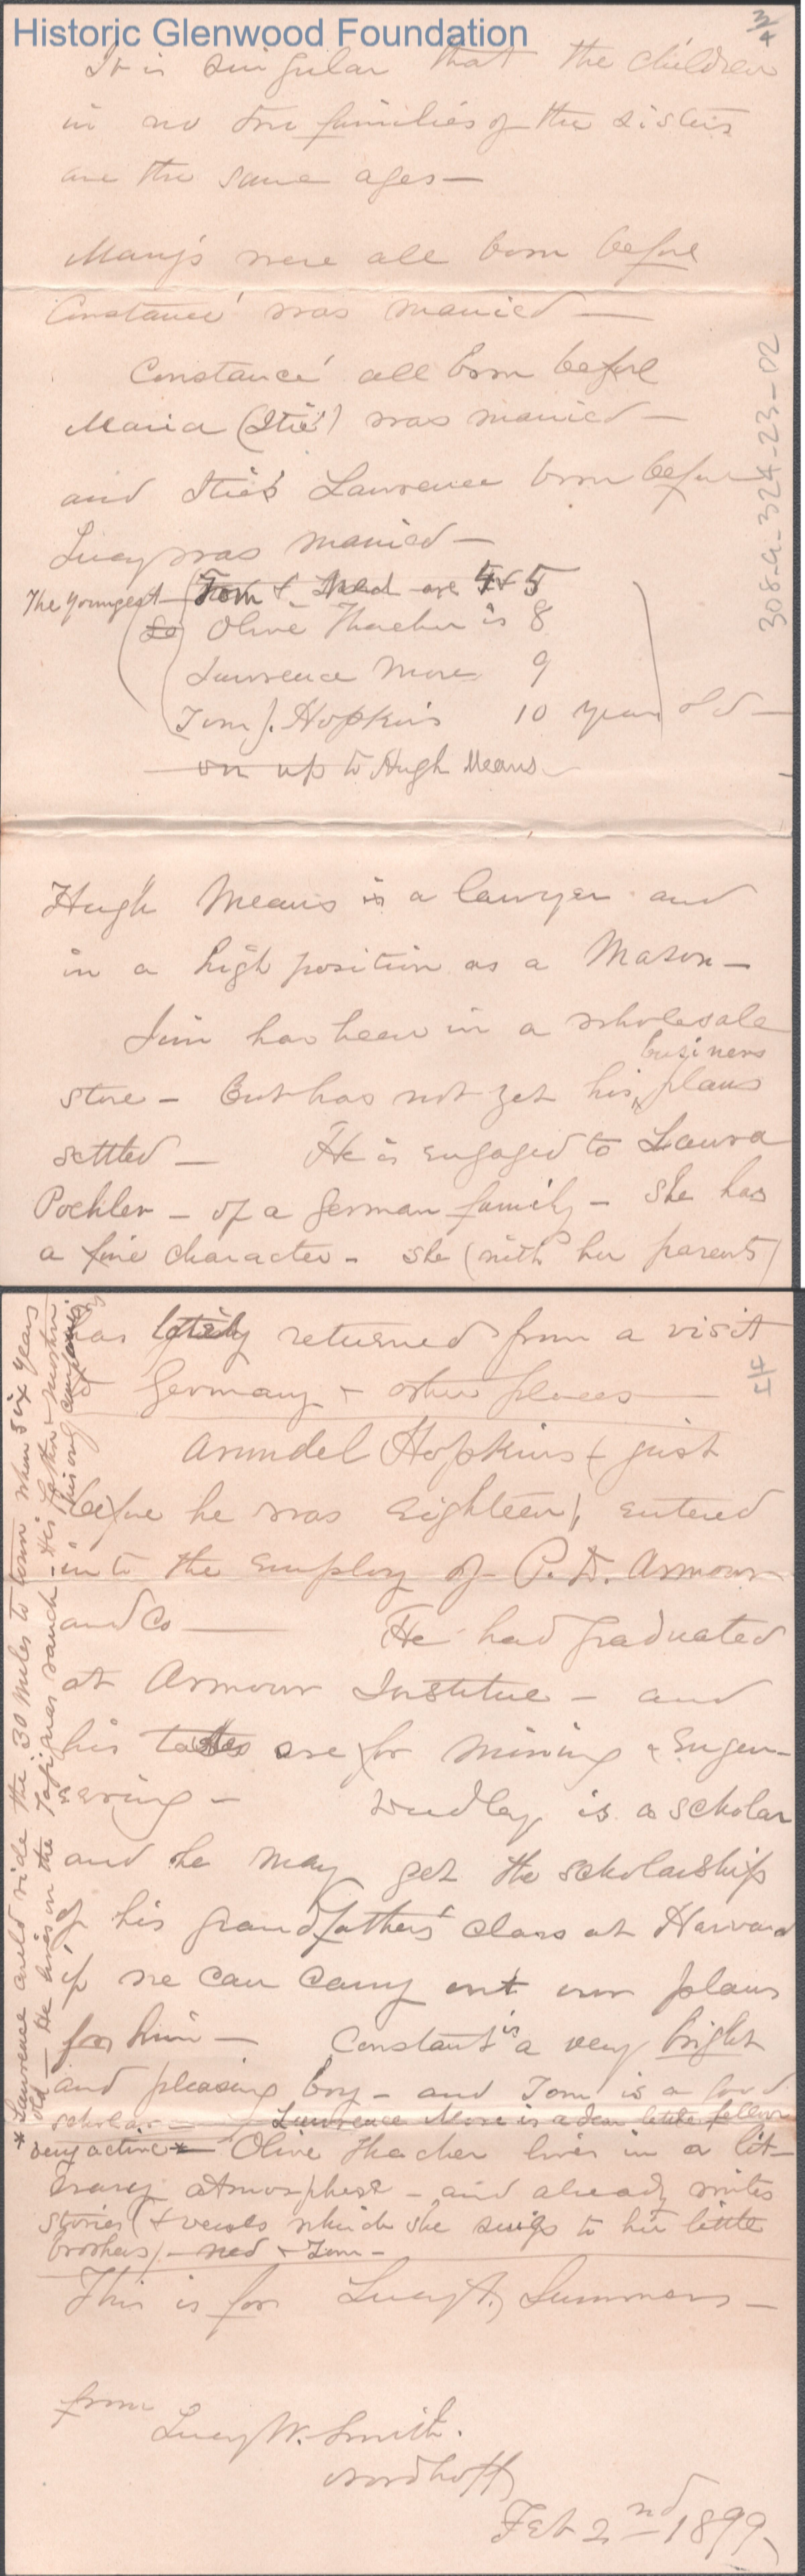 Historic Glenwood Foundation
3/4
It is singular that the children
in no two families of the sisters
are the same ages—
Mary's were all born before
Constance' was married —
Constance' all born before
Maria (Itie') was married —
and Itie's Lawrence born before
Lucy was married —
The youngest Tom & Ned are 4 & 5
So Olive Thacher is 8
Lawrence More 9
Tom J. Hopkins 10 years old —
on up to Hugh Means
308-a-324-23-02
Hugh Means is a lawyer and
in a high position as a Mason —
Jim has been in a wholesale
business
store — but has not yet his plans
settled — He is engaged to Laura
Poehler — of a German family — She has
a fine character — she (with her parents)
4/4
has lately returned from a visit
to Germany & other places —
Arundel Hopkins (just
before he was eighteen), entered
into the employ of P. D. Armour
and Co — He had graduated
at Armour Institue — and
his tastes are for mining & Engen-
eering — Dudley is a scholar
and he may get the scholarship
of his grandfathers' class at Harvard
if we can carry out our plans
for him — Constant is a very bright
and pleasing boy — and Tom is a good
scholar — Lawrence More is a dear little fellow
very active * — Olive Thacher lives in a lit-
erary atmosphere — and already writes
stories (& verses which she sings to her little
brothers) — Ned & Tom —
This is for Lucy A. Summers —
from
Lucy W. Smith.
Nordhoff
Feb 2nd 1899
* Lawrence could ride the 30 miles to town when six years
old — He lives on the ranch — His father & mother
his only companions.